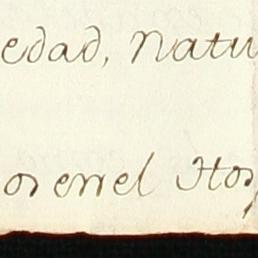 edad, Natu
os en el Hos